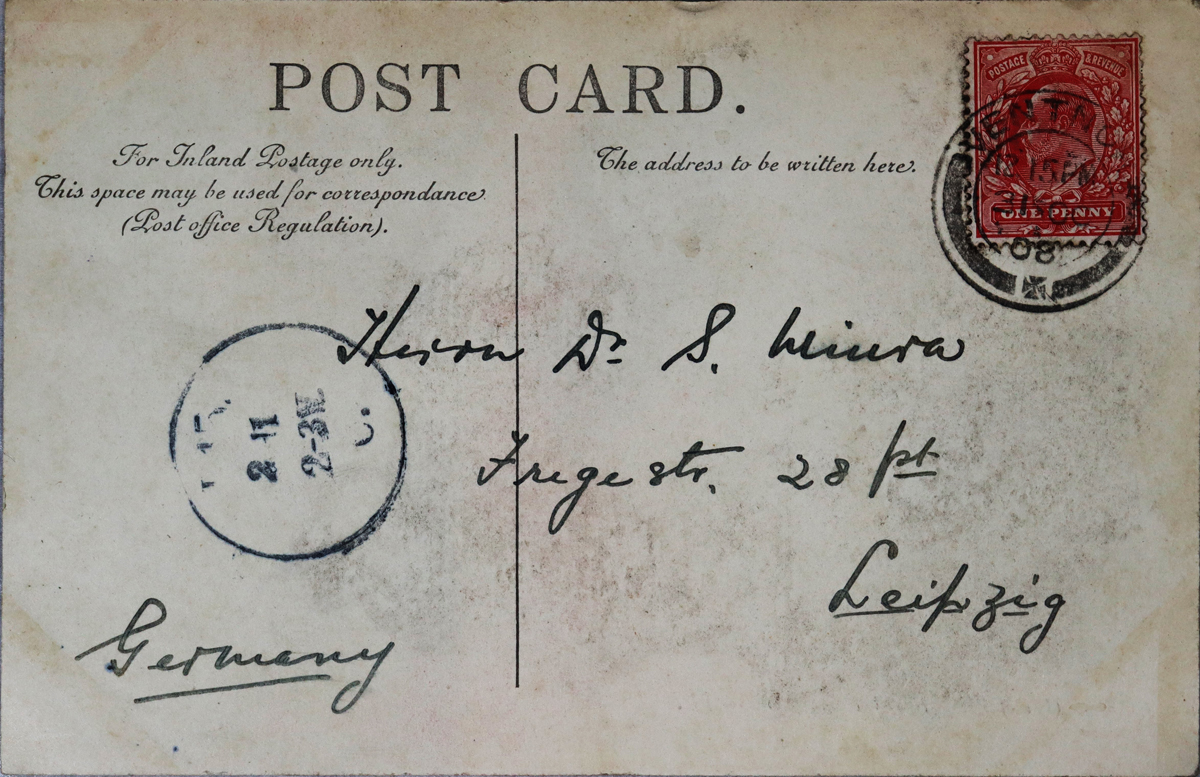 POST CARD.
For Inland Postage only.
This space may be used for correspondance
(Post office Regulation).
The address to be written here.
POSTAGE & REVENUE
ONE PENNY
12 15 PM
08
2 11
2-3N
Herrn Dr S.
Fregestr. 28 pt
Leipzig
Germany